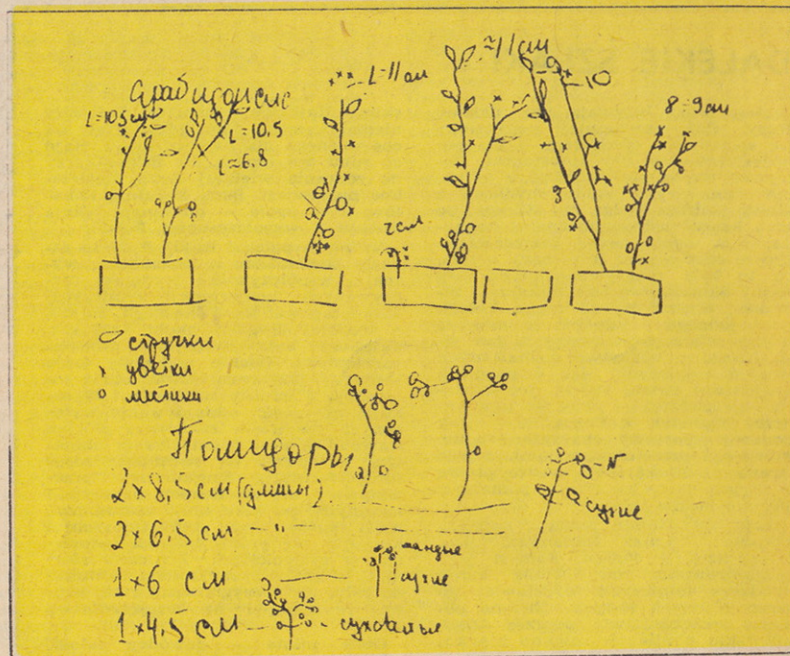 Арабидопсис
L=10.5 см
L=10.5
L≈6.8
L=11 см
≈11 см
10
8÷9 см
2 см
стручки
цветки
листики
Помидоры
2×8.5 см (длины)
2×6.5 см — " —
1×6 см
1×4.5 см
сухие
сухие